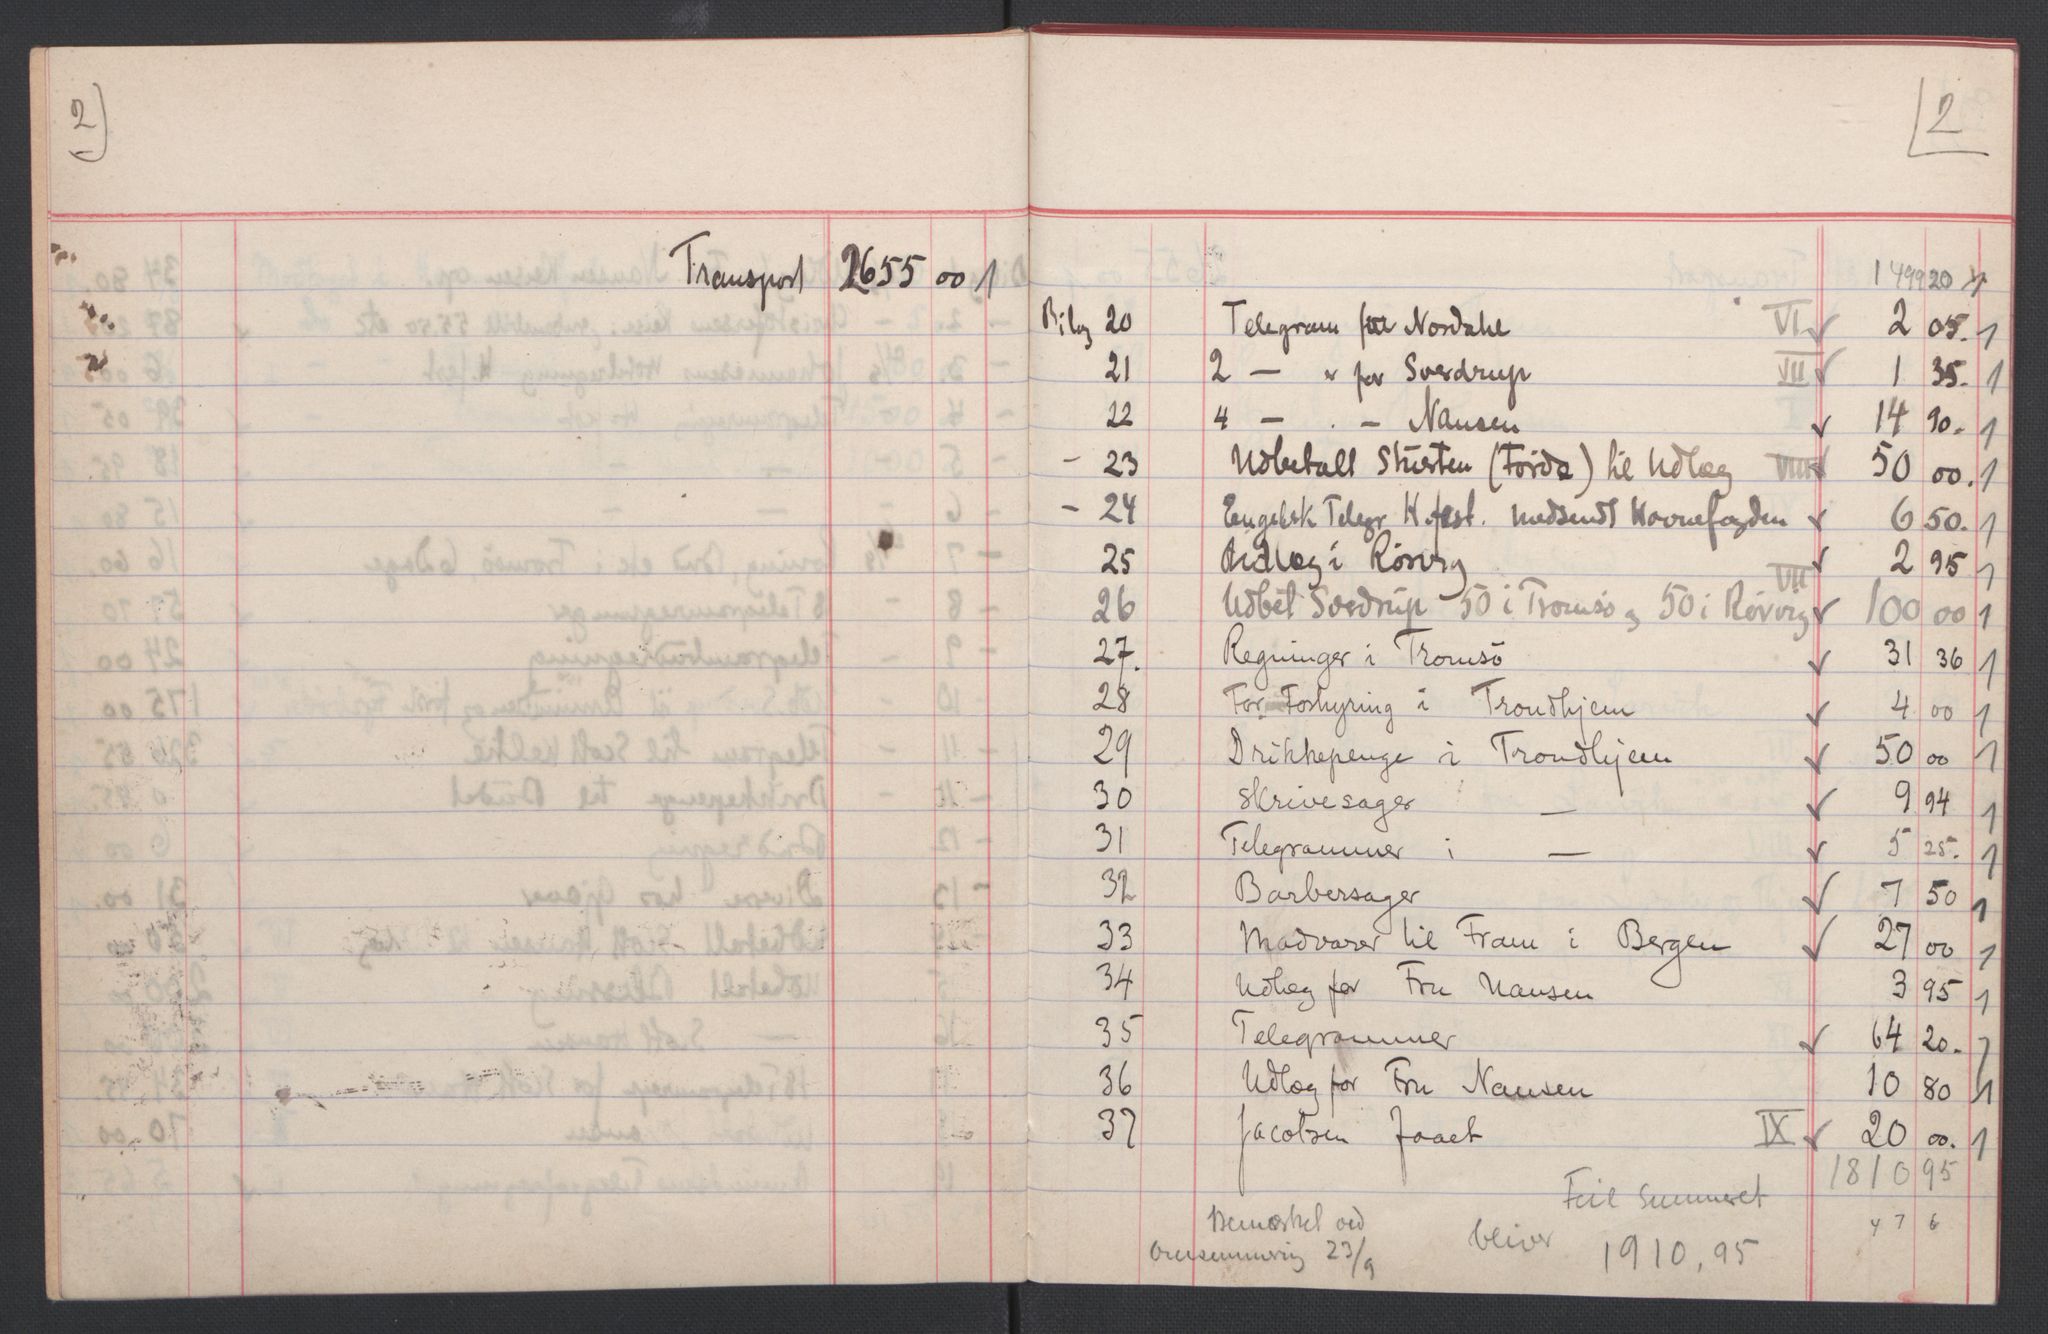 2)
Transport 2655 00 1
2
1499 20
Bilag 20 Telegram Nordahl VI ✓ 2 05. 1
21 2 — " for Sverdrup VII ✓ 1 35. 1
22 4 — . — Nansen ✓ 14 90. 1
- 23 Udbetalt Sturten (Förde) til Udlæg VIII ✓ 50 00. 1
- 24 Engelsk Telegr H.fest. medsendt Havnefogden ✓ 6 50. 1
25 Udlæg i Rørvig ✓ 2 95 1
26 Udbet Sverdrup 50 i Tromsø og 50 i Rørvig VII ✓ 100 00 1
27. Regninger i Tromsö ✓ 31 36 1
28 For Forhyring i Trondhjem ✓ 4 00 1
29 Drikkepenge i Trondhjem ✓ 50 00 1
30 Skrivesager — ✓ 9 94 1
31 Telegrammer i — ✓ 5 25. 1
32 Barbersager ✓ 7 50 1
33 Madvarer til Fram i Bergen ✓ 27 00 1
34 Udlæg for Fru Nansen 3 95 1
35 Telegrammer ✓ 64 20. 1
36 Udlæg for Fru Nansen 10 80 1
37 Jacobsen IX ✓ 20 00. 1
1810 95
Feil summeret
4 7 6
bliver 1910,95
Bemærket ved
Omsummering 23/9